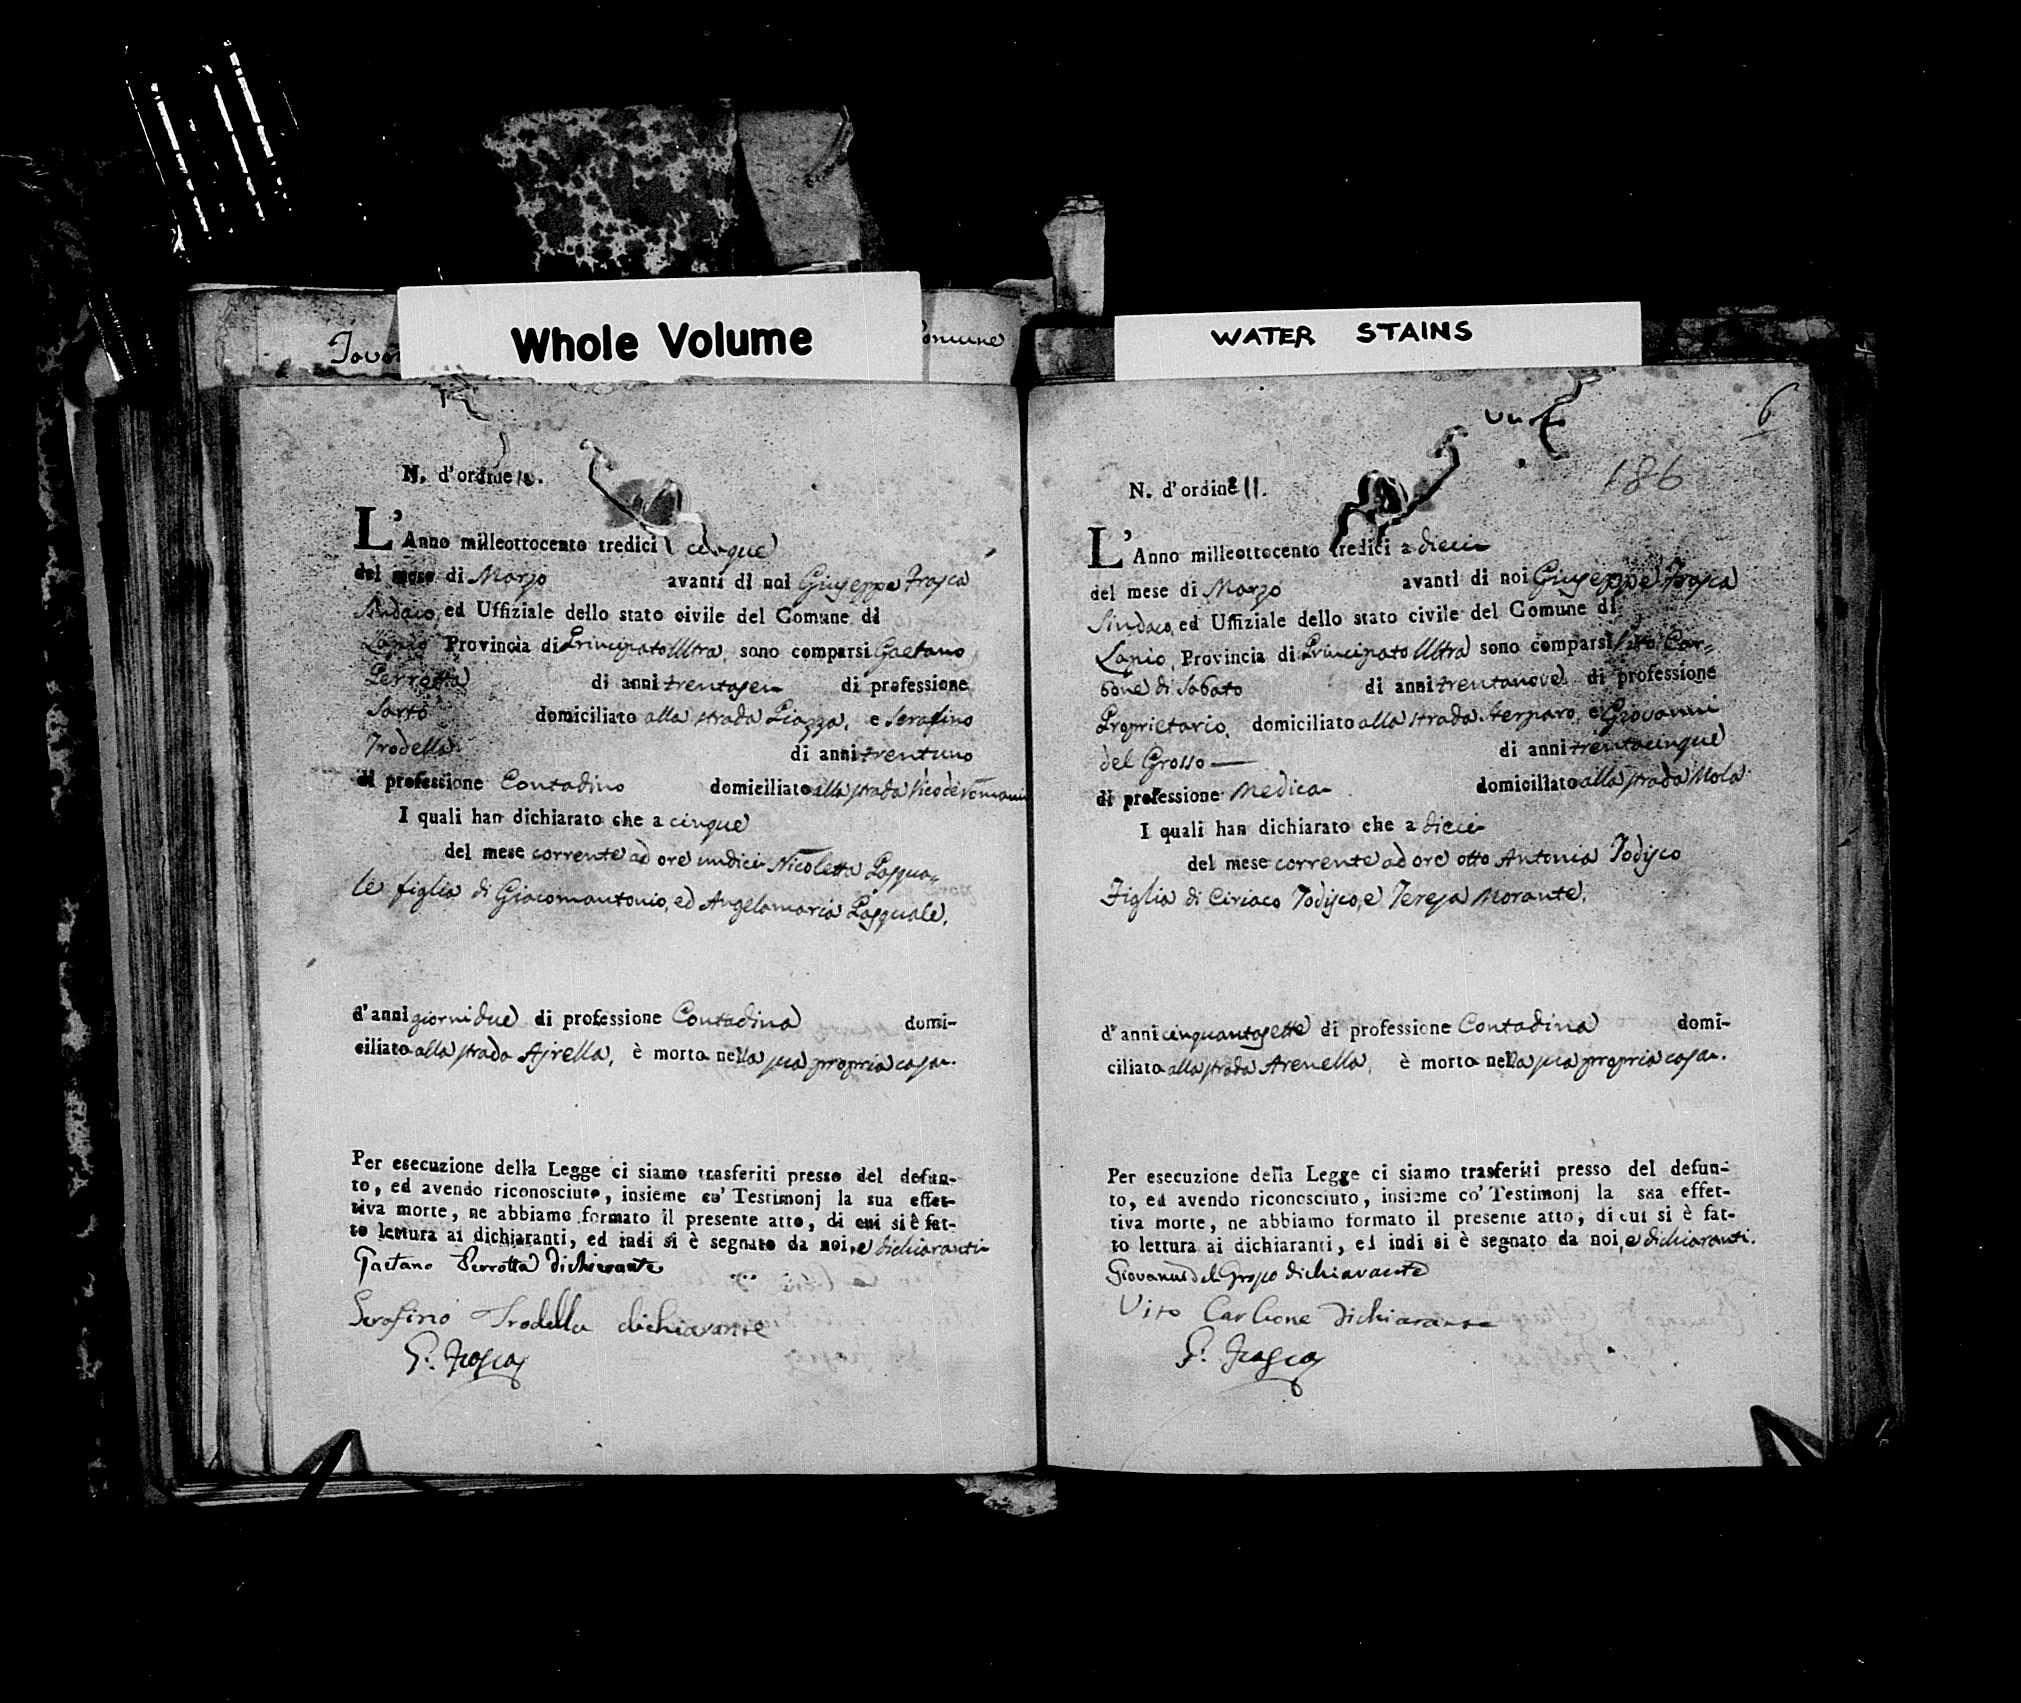 Whole Volume
WATER STAINS
N. d'ordine 10.
L'Anno milleottocento tredici a cinque
del mese di Marzo avanti di noi Giuseppe Frasca
Sindaco, ed Uffiziale dello stato civile del Comune di
Lapio Provincia di Principato Ultra, sono comparsi Gaetano
Perrotta di anni trentasei di professione
Sarto domiciliato alla strada Piazza, e Serafino
Trodella di anni trentuno
di professione Contadino domiciliato alla strada
I quali han dichiarato che a cinque
del mese corrente ad ore undici Nicoletta Pasqua-
le figlia di Giacomantonio, ed Angelamaria Pasquale,
d'anni giorni due di professione Contadina domi-
ciliata alla strada Ajrella, è morta nella sua propria casa.
Per esecuzione della Legge ci siamo trasferiti presso del defun-
to, ed avendo riconosciuto, insieme co' Testimonj la sua effet-
tiva morte, ne abbiamo formato il presente atto, di cui si è fat-
to lettura ai dichiaranti, ed indi si è segnato da noi, e dichiaranti
Gaetano Perrotta dichiarante
Serafino Trodella dichiarante
G. Frasca
6
186
N. d'ordine 11.
L'Anno milleottocento tredici a dieci
del mese di Marzo avanti di noi Giuseppe Frasca
Sindaco, ed Uffiziale dello stato civile del Comune di
Lapio, Provincia di Principato Ultra sono comparsi Vito Car-
bone di Sabato di anni trentanove di professione
Proprietario, domiciliato alla strada Serparo, e Giovanni
del Grosso di anni trentacinque
di professione Medico domiciliato alla strada Mola
I quali han dichiarato che a dieci
del mese corrente ad ore otto Antonia Todisco
Figlia di Ciriaco Todisco, e Teresa Morante,
d'anni cinquantasette di professione Contadina domi-
ciliata alla strada Arenella, è morta nella sua propria casa.
Per esecuzione della Legge ci siamo trasferiti presso del defun-
to, ed avendo riconosciuto, insieme co' Testimonj la sua effet-
tiva morte, ne abbiamo formato il presente atto, di cui si è fat-
to lettura ai dichiaranti, ed indi si è segnato da noi, e dichiaranti.
Giovanni del Grosso dichiarante
Vito Carbone dichiarante
G. Frasca